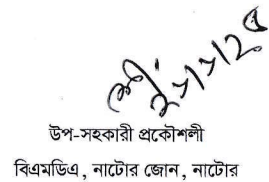 উপ-সহকারী প্রকৌশলী
বিএমডিএ, নাটোর জোন, নাটোর